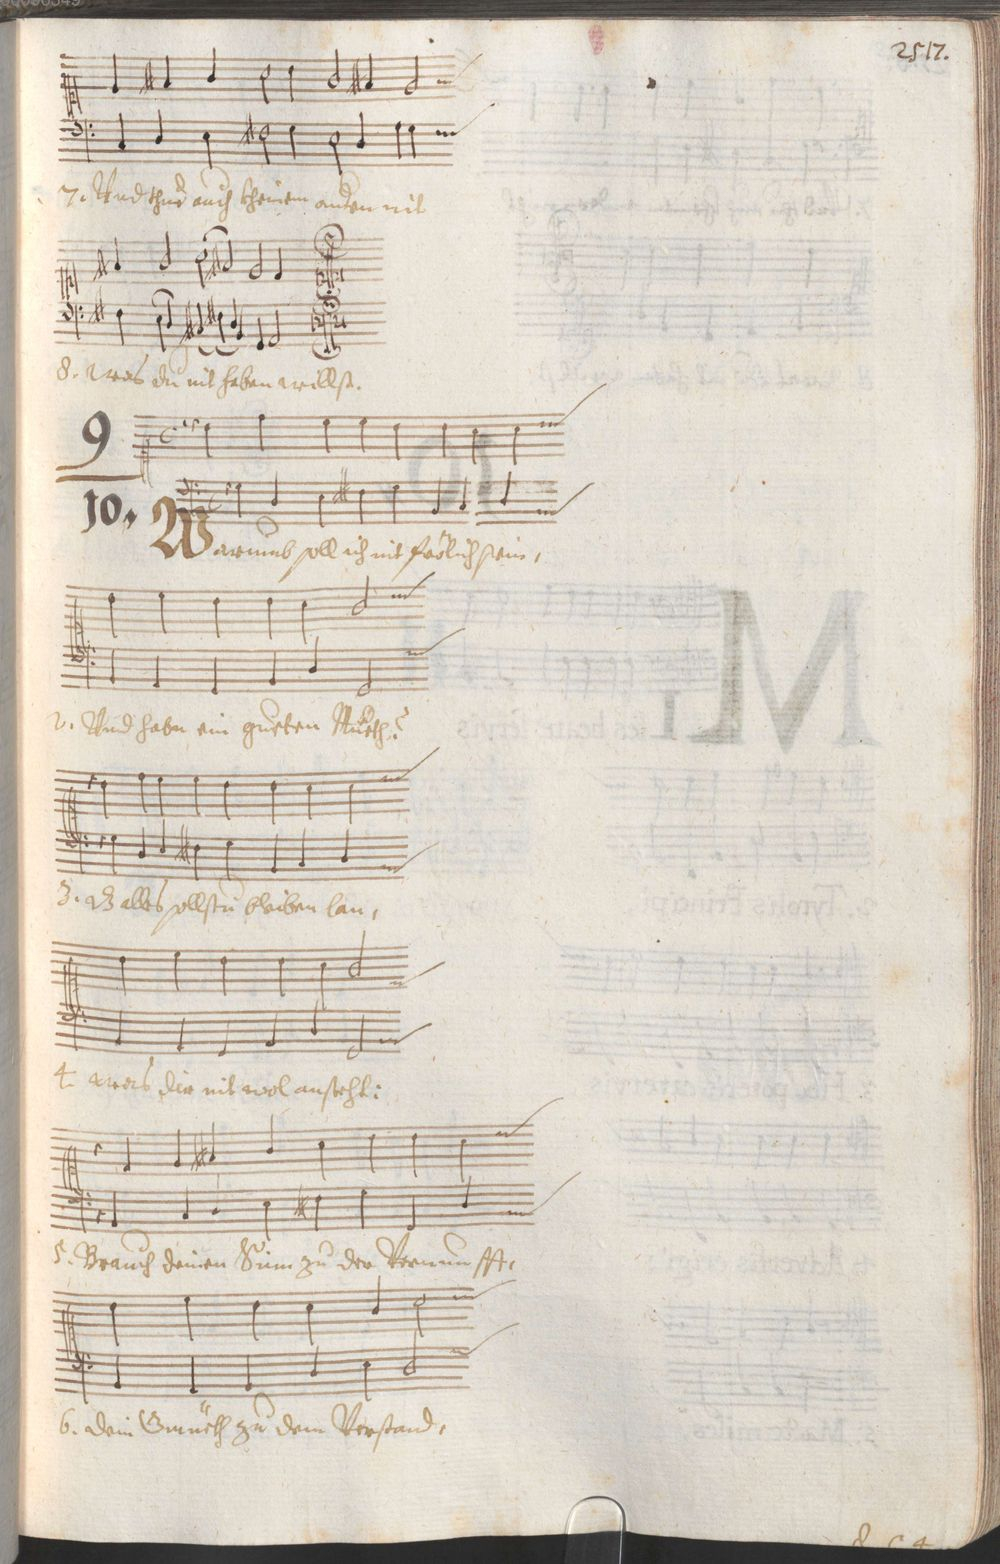 2517.
7. Und thue auch kheinem anden nit
8. was du nit haben willst.
9
10. Warumb soll ich nit frölich sein,
2. Und habn ein gueten Mueth?
3. alles sollstu bleiben lan,
4. was dir nit wol anseht:
5. Brauch deinen Sinn zu der Vernunfft,
6. dein Gmüeth zu dem Verstand,